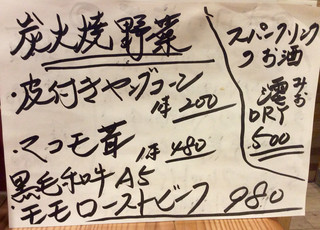 炭火焼 野菜
・皮付きヤングコーン
1本 200
・マコモ茸 1本 480
黒毛和牛 A5
モモローストビーフ 980
スパークリング
のお酒
澪 みお
DRY
500